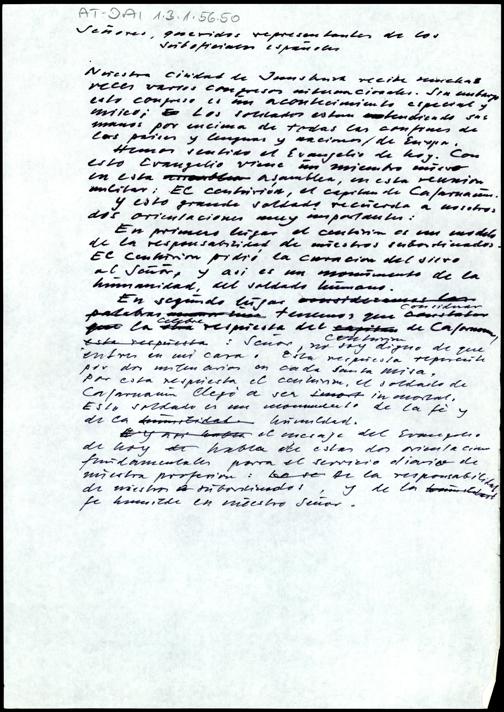 AT-DAI 1.3.1.56.50
Señores, queridos representantes de los
suboficiales españoles
Nuestra ciudad de Innsbruck recibe muchas
veces varios congresos internacionales. Sin embargo
esto congreso es un acontecimiento especial y
Los soldados estan extendiendo sus
manos por encima de todas las confines de
los paises y lenguas y naciones de Europa.
Hemos sentido el Evangelio de hoy. Con
esto Evangelio viene un miembro nuevo
en esta asamblea, en esta reunion
militar: El centurión, el capitan de Cafarnaúm.
Y esto grande soldado recuerda a nosotros
dos orientaciones muy importantes:
En primero lugar el centurion es un modelo
de la responsabilidad de nuestros subordinados.
El Centurion pidió la curacion del siervo
al Señor, y asi es un monumento de la
humanidad, del soldado humano.
En segundo lugar consideremos las
palabras tenemos que constatar considerar
que la respuesta del capitan de Cafarnaum,
centurion
esta respuesta: Señor, no soy digno de que
entres en mi casa. Esta respuesta
por dos milenarios en cada Santa Misa.
Por esta respuesta el centurion, el soldado de
Cafarnaum llegó a ser inmortal.
Esto soldado es un monumento de la fe y
de la humildad.
el mensaje del Evangelio
de hoy habla de estas dos orientaciones
fundamentales para el servicio diario de
nuestra profesion: de la responsabilidad
de nuestros subordinados y de la
fe humilde en nuestro Señor.